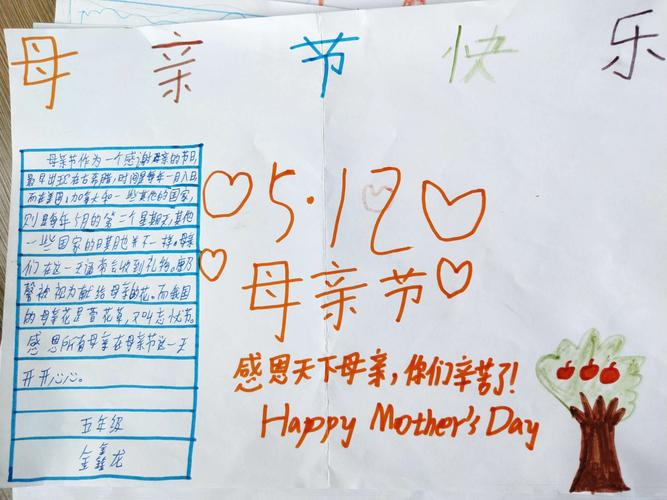 母亲节快乐
母亲节作为一个感谢母亲的节日,
最早出现在古希腊,时间是每年一月八日,
而在美国、加拿大和一些其他的国家,
则是每年5月的第二个星期天,其他
一些国家的日期也并不一样。母亲
们在这一天通常会收到礼物。康乃
馨被视为献给母亲的花。而我国
的母亲花是萱花草,又叫忘忧草。
感恩所有母亲在母亲节这一天
开开心心。
五年级
金鑫龙
5·12
母亲节
感恩天下母亲,你们辛苦了!
Happy Mother's Day